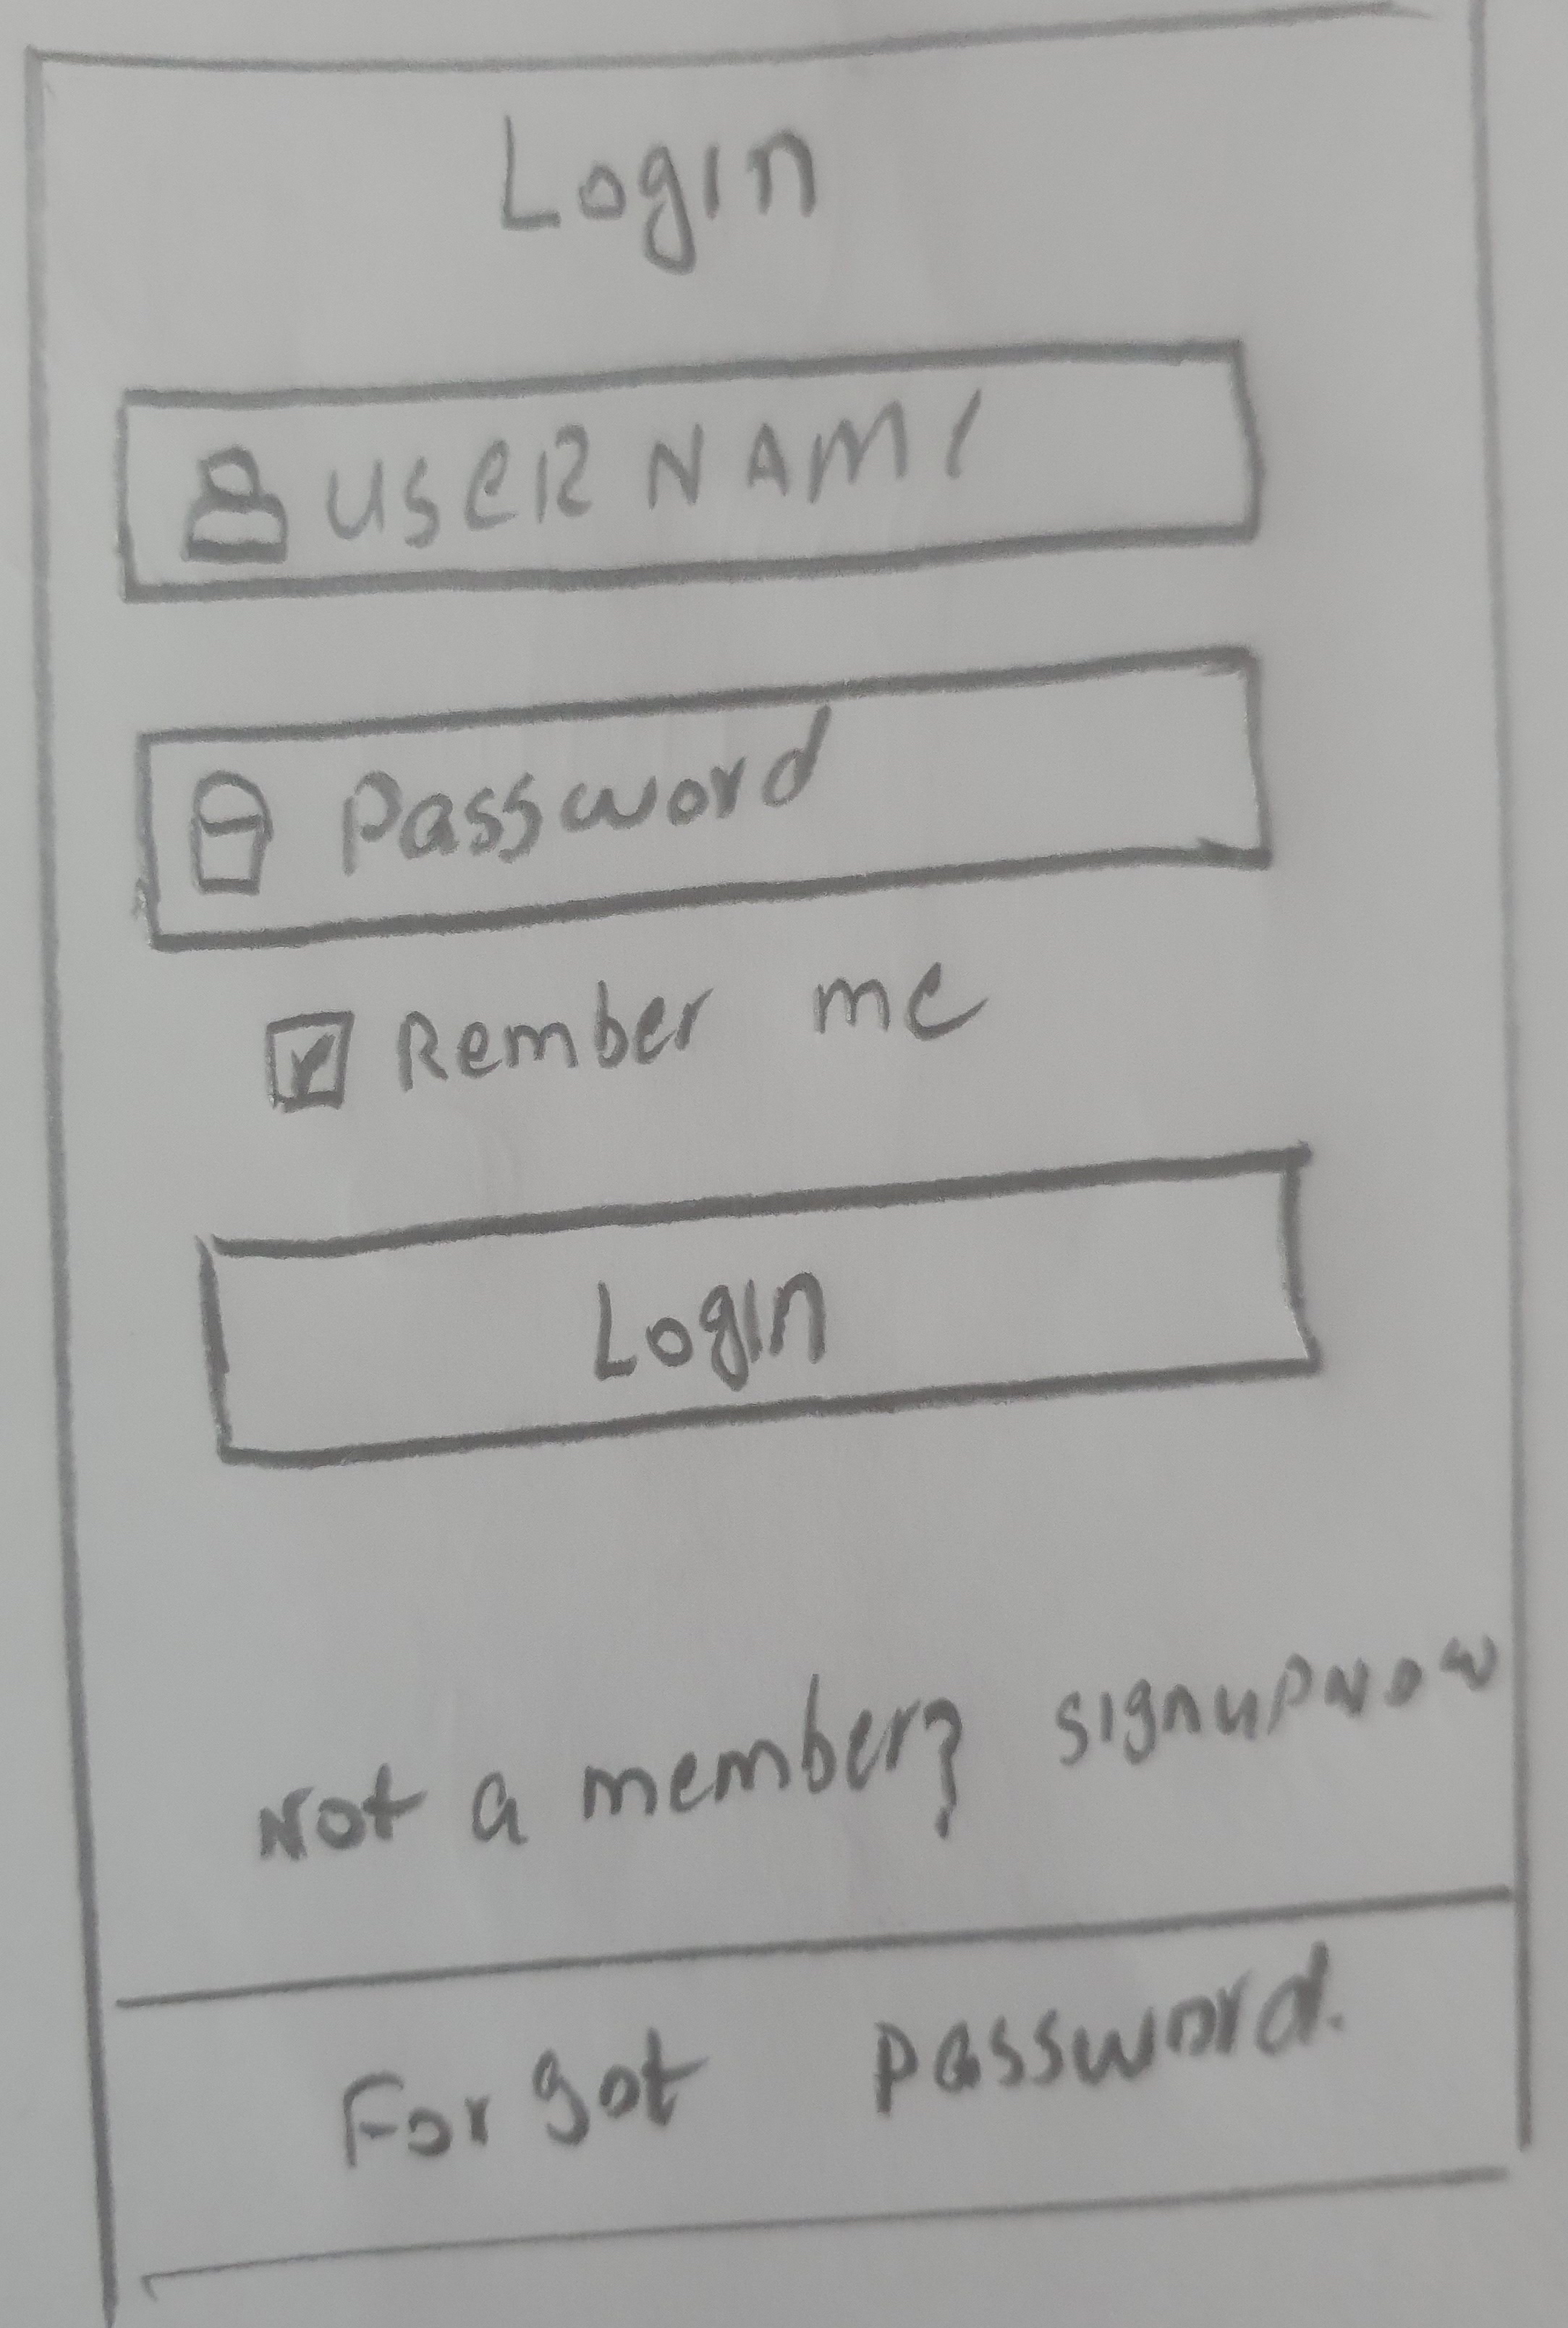 Login
USER NAME
Password
Rember me
Login
Not a member? signup now
Forgot password.